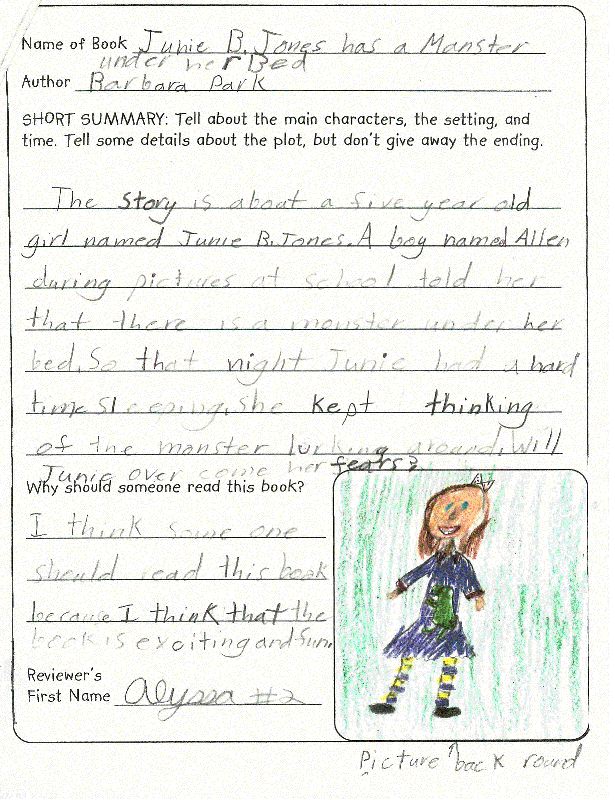 Name of Book Junie B. Jones has a Monster
under her Bed
Author Barbara Park
SHORT SUMMARY: Tell about the main characters, the setting, and
time. Tell some details about the plot, but don't give away the ending.
The story is about a five year old
girl named Junie B. Jones. A boy named Allen
during pictures at school told her
that there is a monster under her
bed. So that night Junie had a hard
time sleeping. she kept thinking
of the monster lurking around. Will
Junie over come her fears?
Why should someone read this book?
I think some one
should read this book
because I think that the
book is exciting and fun.
Reviewer's
First Name Alyssa #2
Picture ↑ back round